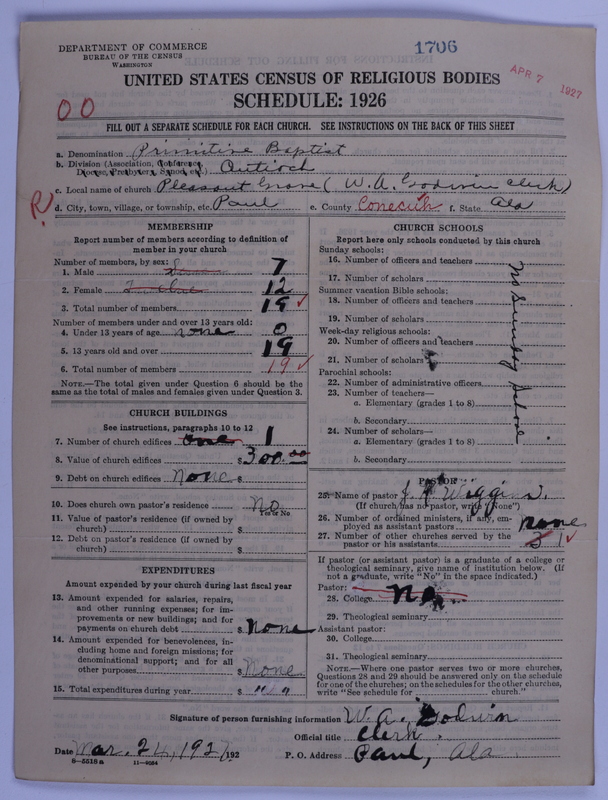 DEPARTMENT OF COMMERCE
BUREAU OF THE CENSUS
WASHINGTON
1706
APR 7 1927
UNITED STATES CENSUS OF RELIGIOUS BODIES
SCHEDULE: 1926
00
FILL OUT A SEPARATE SCHEDULE FOR EACH CHURCH. SEE INSTRUCTIONS ON THE BACK OF THIS SHEET
a. Denomination Primitive Baptist
b. Division (Association, Conference, Diocese, Presbytery, Synod, etc.) Antioch
c. Local name of church Pleasant Grove (W. A. Godwin Clerk)
R
d. City, town, village, or township, etc. Paul e. County Conecuh f. State Ala
MEMBERSHIP
Report number of members according to definition of
member in your church
Number of members, by sex:
1. Male 7
2. Female Twelve 12
3. Total number of members 19
Number of members under and over 13 years old:
4. Under 13 years of age none 0
5. 13 years old and over 19
6. Total number of members 19
NOTE.—The total given under Question 6 should be
same as the total of males and females given under Question 3.
CHURCH BUILDINGS
See instructions, paragraphs 10 to 12
7. Number of church edifices one 1
8. Value of church edifices $300.00
9. Debt on church edifices None $
10. Does church own pastor's residence No
Yes or No
11. Value of pastor's residence (if owned by
church) $
12. Debt on pastor's residence (if owned by
church) $
EXPENDITURES
Amount expended by your church during last fiscal year
13. Amount expended for salaries, repairs,
and other running expenses; for im-
provements or new buildings; and for
payments on church debt $ None
14. Amount expended for benevolences, in-
cluding home and foreign missions; for
denominational support; and for all
other purposes $ None
15. Total expenditures during year $
CHURCH SCHOOLS
Report here only schools conducted by this church
Sunday schools:
16. Number of officers and teachers
17. Number of scholars
Summer vacation Bible schools:
18. Number of officers and teachers
19. Number of scholars
Week-day religious schools:
20. Number of officers and teachers
21. Number of scholars
Parochial schools:
22. Number of administrative officers
23. Number of teachers—
a. Elementary (grades 1 to 8)
b. Secondary
24. Number of scholars—
a. Elementary (grades 1 to 8)
b. Secondary
No Sunday School
PASTOR
25. Name of pastor J. Wiggins.
(If church has no pastor, write "None")
26. Number of ordained ministers, if any, em-
ployed as assistant pastors none
27. Number of other churches served by the
pastor or his assistants 3 1
If pastor (or assistant pastor) is a graduate of a college or
theological seminary, give name of institution below. (If
not a graduate, write "No" in the space indicated.)
Pastor:
28. College No
29. Theological seminary
Assistant pastor:
30. College
31. Theological seminary
NOTE.—Where one pastor serves two or more churches,
Questions 28 and 29 should be answered only on the schedule
for one of the churches; on the schedules for the other churches,
write "See schedule for church."
Signature of person furnishing information W. A. Godwin
Official title Clerk.
Date Mar. 24, 1927, 192 P. O. Address Paul, Ala
8—5518 a 11—9084